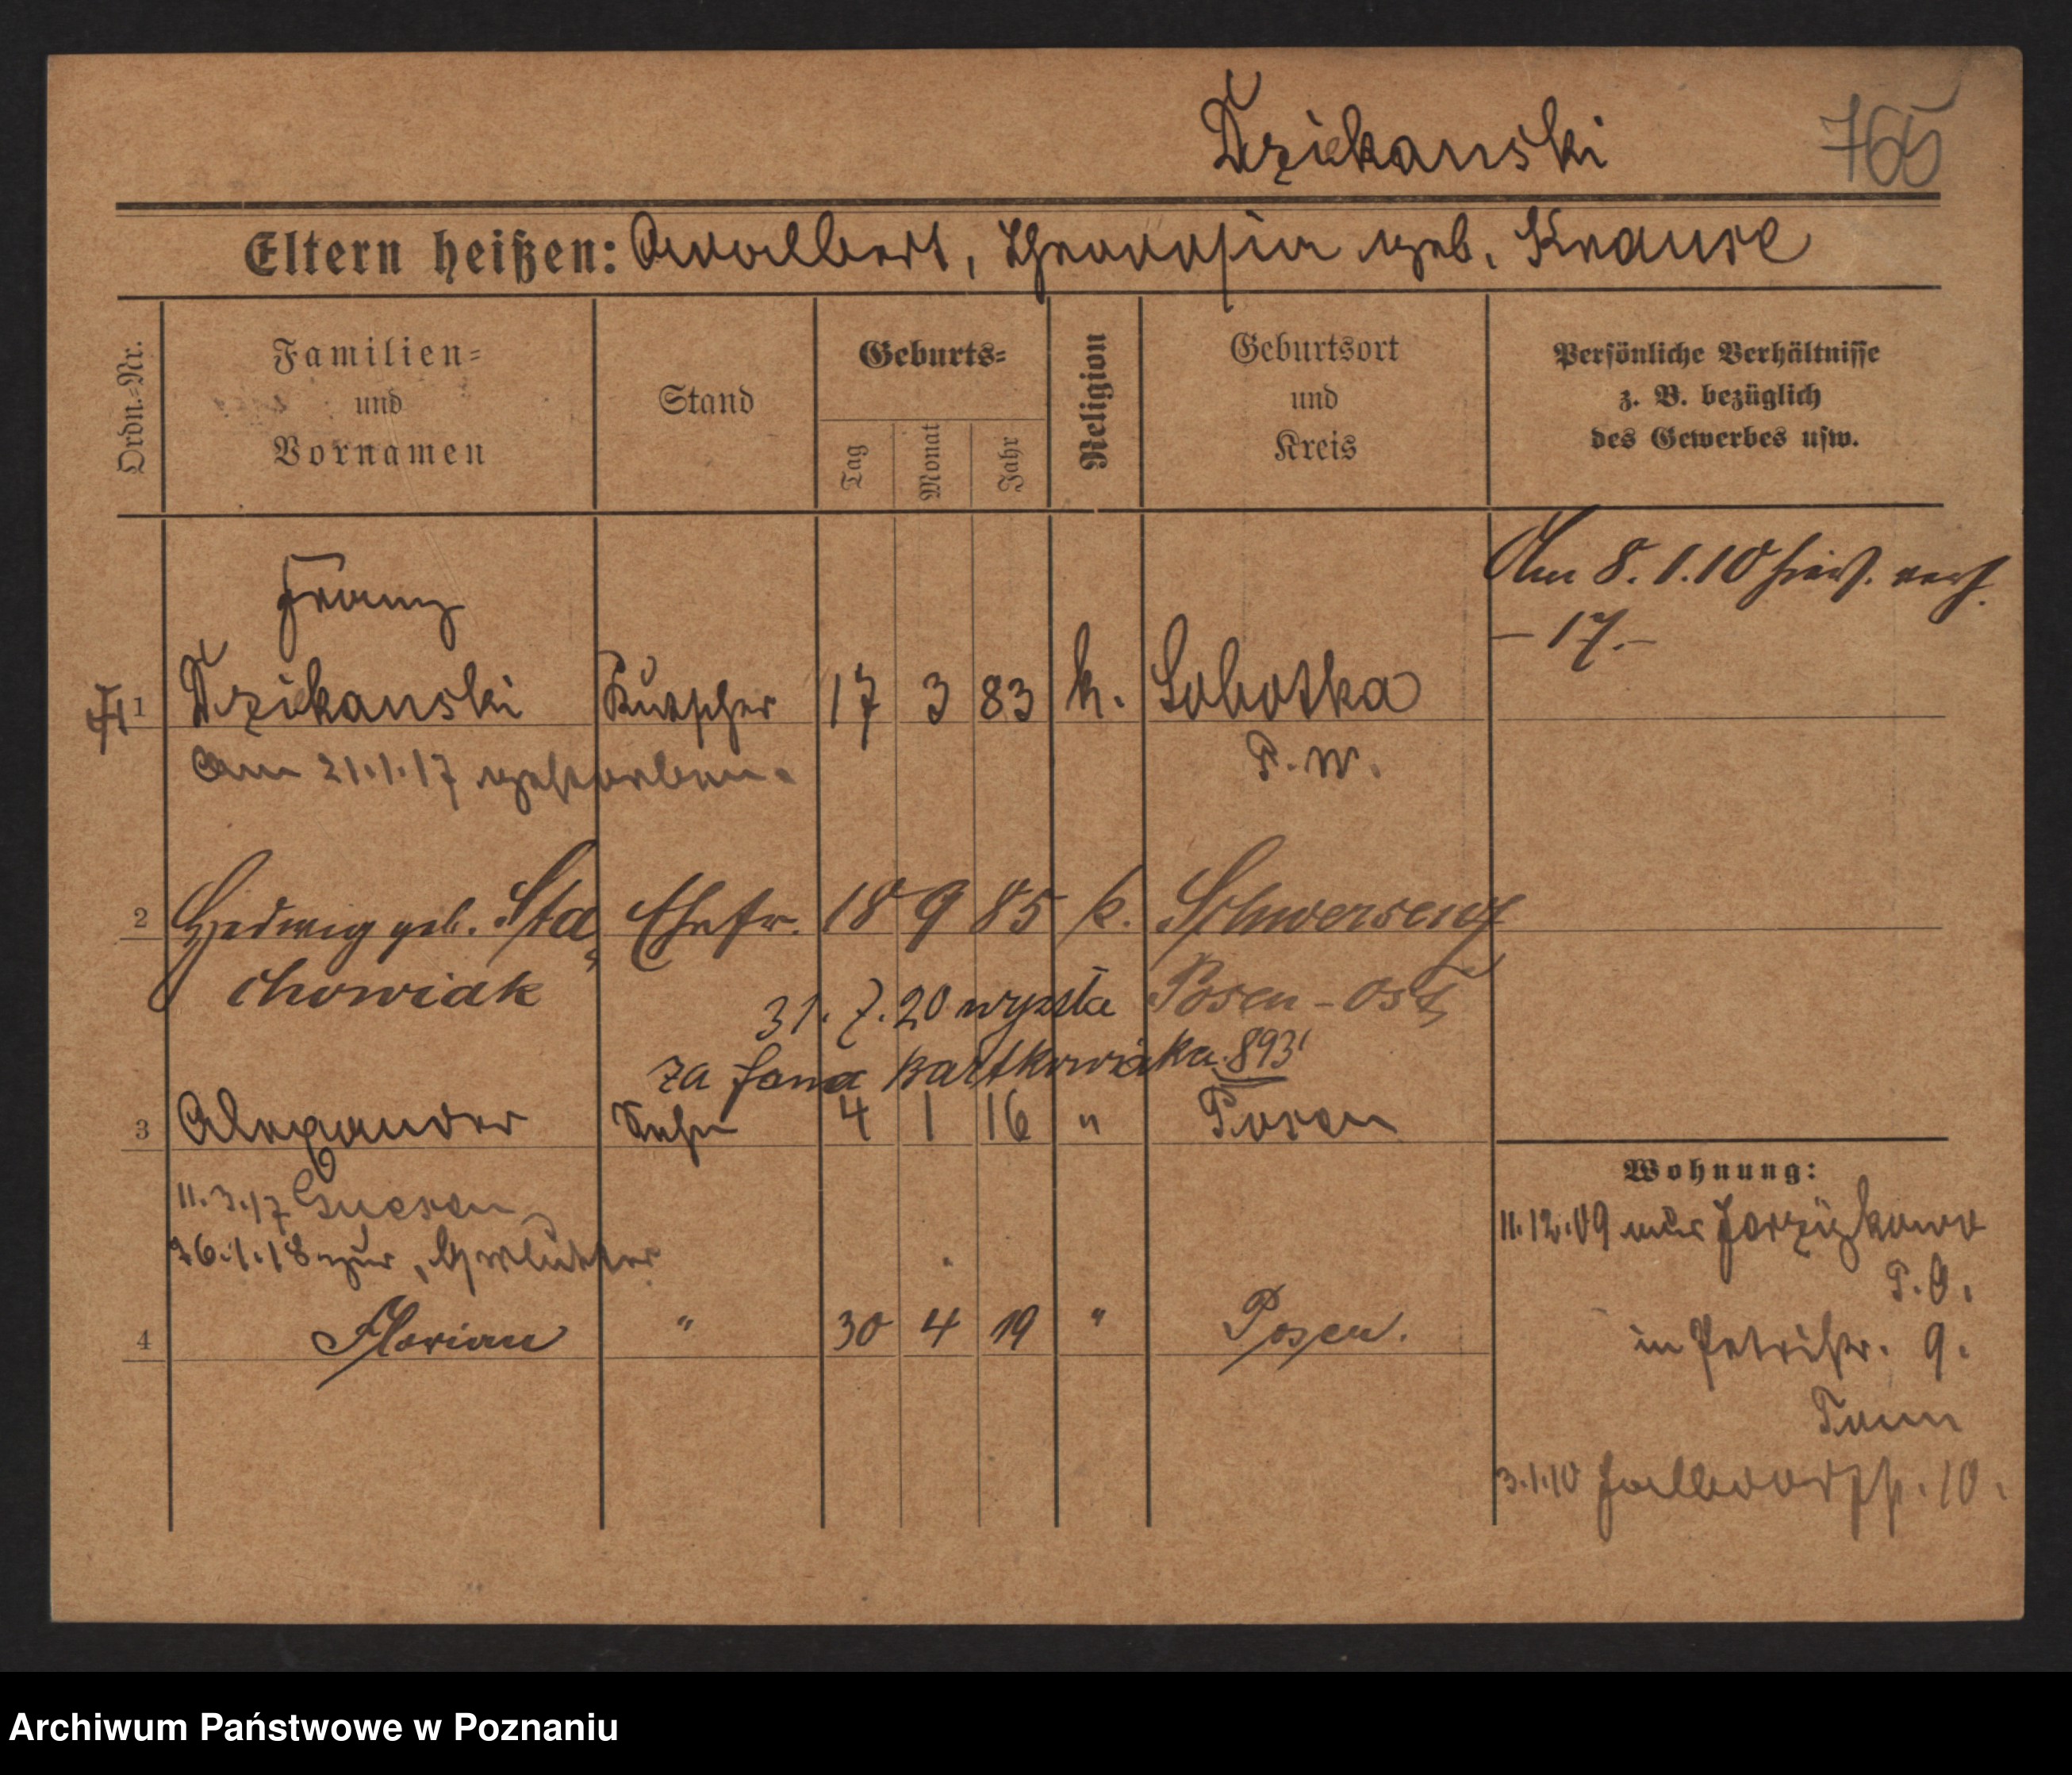 Dziekanski 765
Eltern heißen: Adalbert, geb. Krause
Ordn.-Nr.
Familien-
und
Vornamen
Stand
Geburts-
Tag
Monat
Jahr
Religion
Geburtsort
und
Kreis
Persönliche Verhältnisse
z. B. bezüglich
des Gewerbes usw.
Am 8.1.10 hier verh.
- 17.-
Franz
1 Dziekanski Kutscher 17 3 83 k. Sobotka
am 21.1.17 gestorben. P. W.
2 Hedwig geb. Sta= Ehefr. 18 9 85 k. Schwersenz
chowiak Posen-Ost
31.7.20 wyszła
za Jana Bartkowiaka 893
3 Alexander Sohn 4 1 16 " Posen
11.3.17 Gnesen
26.1.18 zur Mutter
4 Florian " 30 4 19 " Posen.
Wohnung:
11.12.09 aus
P. O.
in Petristr. 9.
3.1.10 10.
Archiwum Państwowe w Poznaniu